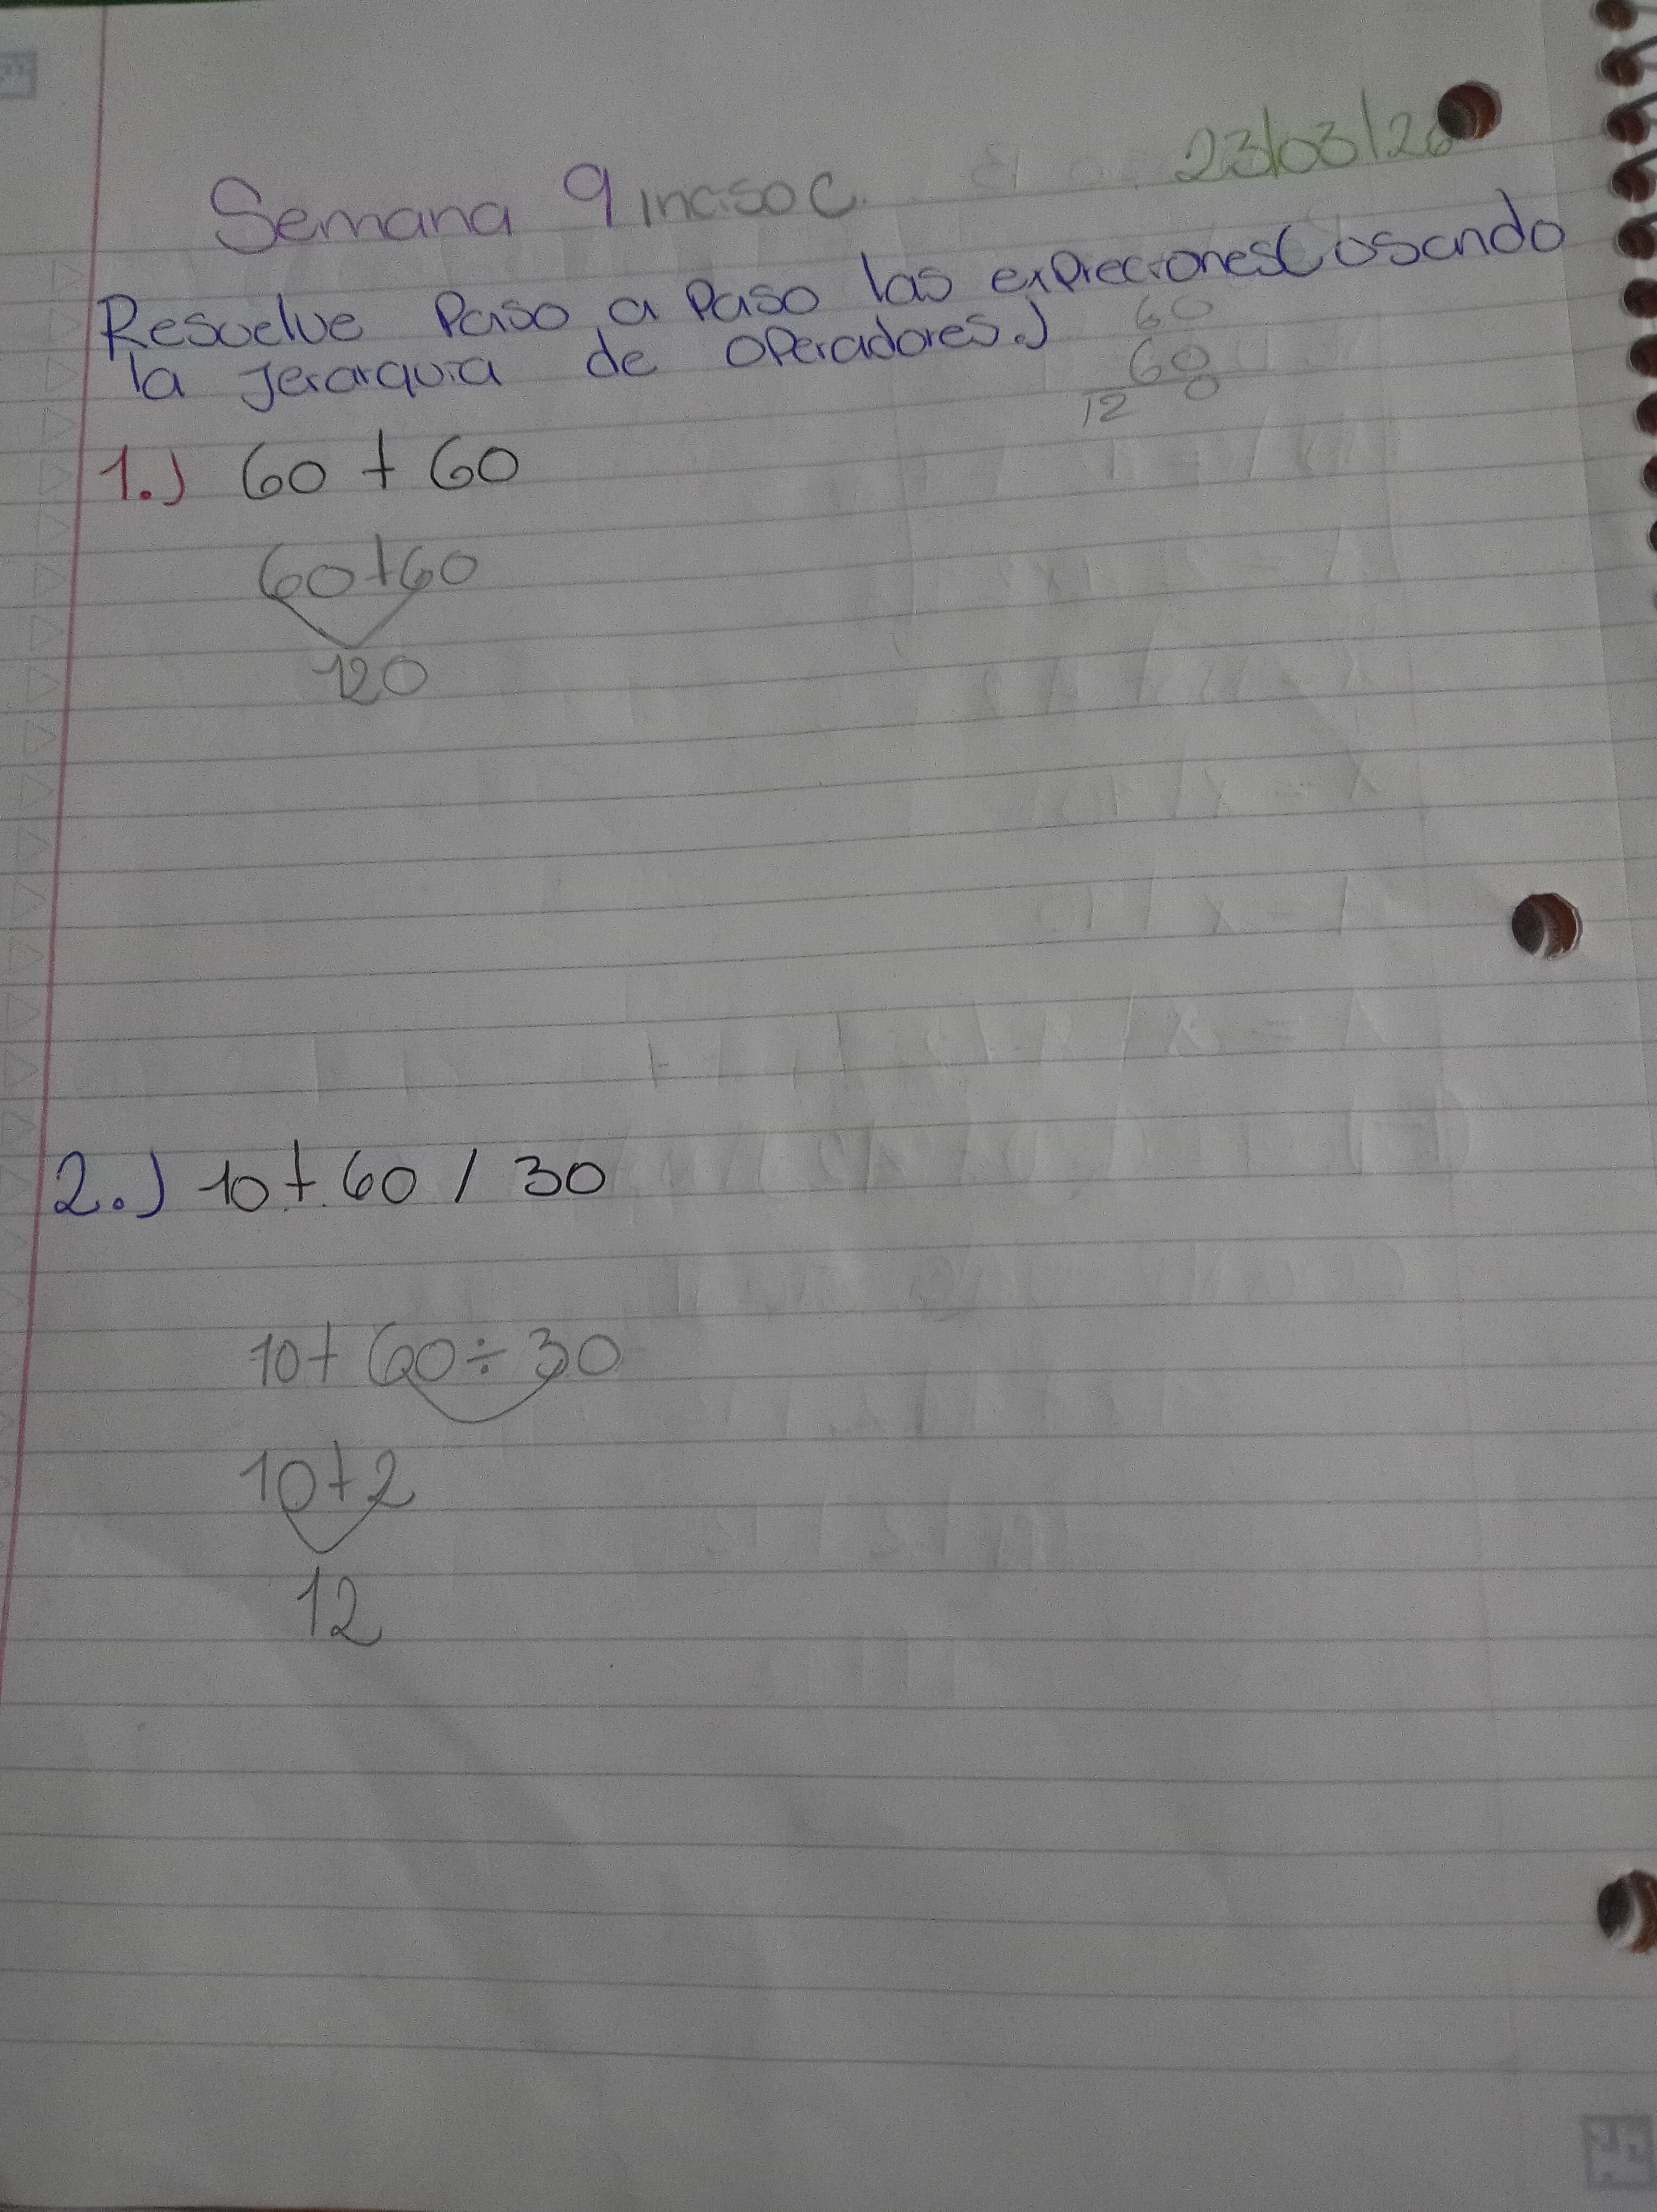 23/03/26
Semana 9 inciso C.
Resuelve Paso a Paso las expreciones(usando
la jerarquia de operadores.)
60
60
12 0
1.) 60 + 60
60+60
120
2.) 10 + 60 / 30
10+ 60 ÷ 30
10+2
12